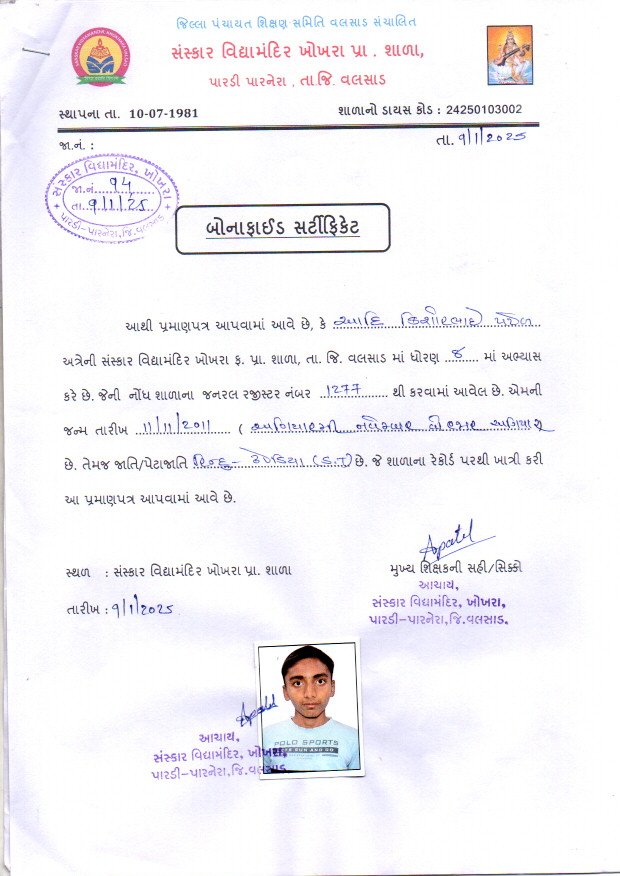 જિલ્લા પંચાયત શિક્ષણ સમિતિ વલસાડ સંચાલિત
સંસ્કાર વિદ્યામંદિર ખોખરા પ્રા . શાળા,
પારડી પારનેરા , તા.જિ. વલસાડ
સ્થાપના તા. 10-07-1981 શાળાનો ડાયસ કોડ : 24250103002
જા.નં. : તા. ૧/1/2025
સંસ્કાર વિદ્યામંદિર, ખોખરા
જા.નં. ૧૫
તા. ૧/1/25
પારડી-પારનેરા,જિ.વલસાડ
બોનાફાઈડ સર્ટીફિકેટ
આથી પ્રમાણપત્ર આપવામાં આવે છે, કે આદિ કિશોરભાઈ પટેલ
અત્રેની સંસ્કાર વિદ્યામંદિર ખોખરા ફ. પ્રા. શાળા, તા. જિ. વલસાડ માં ધોરણ ૮ માં અભ્યાસ
કરે છે. જેની નોંધ શાળાના જનરલ રજીસ્ટર નંબર 1277 થી કરવામાં આવેલ છે. એમની
જન્મ તારીખ 11/11/2011 ( અગિયારમી નવેમ્બર બે હજાર અગિયાર
છે. તેમજ જાતિ/પેટાજાતિ હિન્દુ- ઢોડિયા (S.T) છે. જે શાળાના રેકોર્ડ પરથી ખાત્રી કરી
આ પ્રમાણપત્ર આપવામાં આવે છે.
સ્થળ : સંસ્કાર વિદ્યામંદિર ખોખરા પ્રા. શાળા મુખ્ય શિક્ષકની સહી/સિક્કો
આચાર્ય,
તારીખ : ૧/1/2025 સંસ્કાર વિદ્યામંદિર, ખોખરા,
પારડી-પારનેરા,જિ.વલસાડ.
POLO SPORTS
આચાર્ય,
સંસ્કાર વિદ્યામંદિર, ખોખરા,
પારડી-પારનેરા,જિ.વલસાડ.